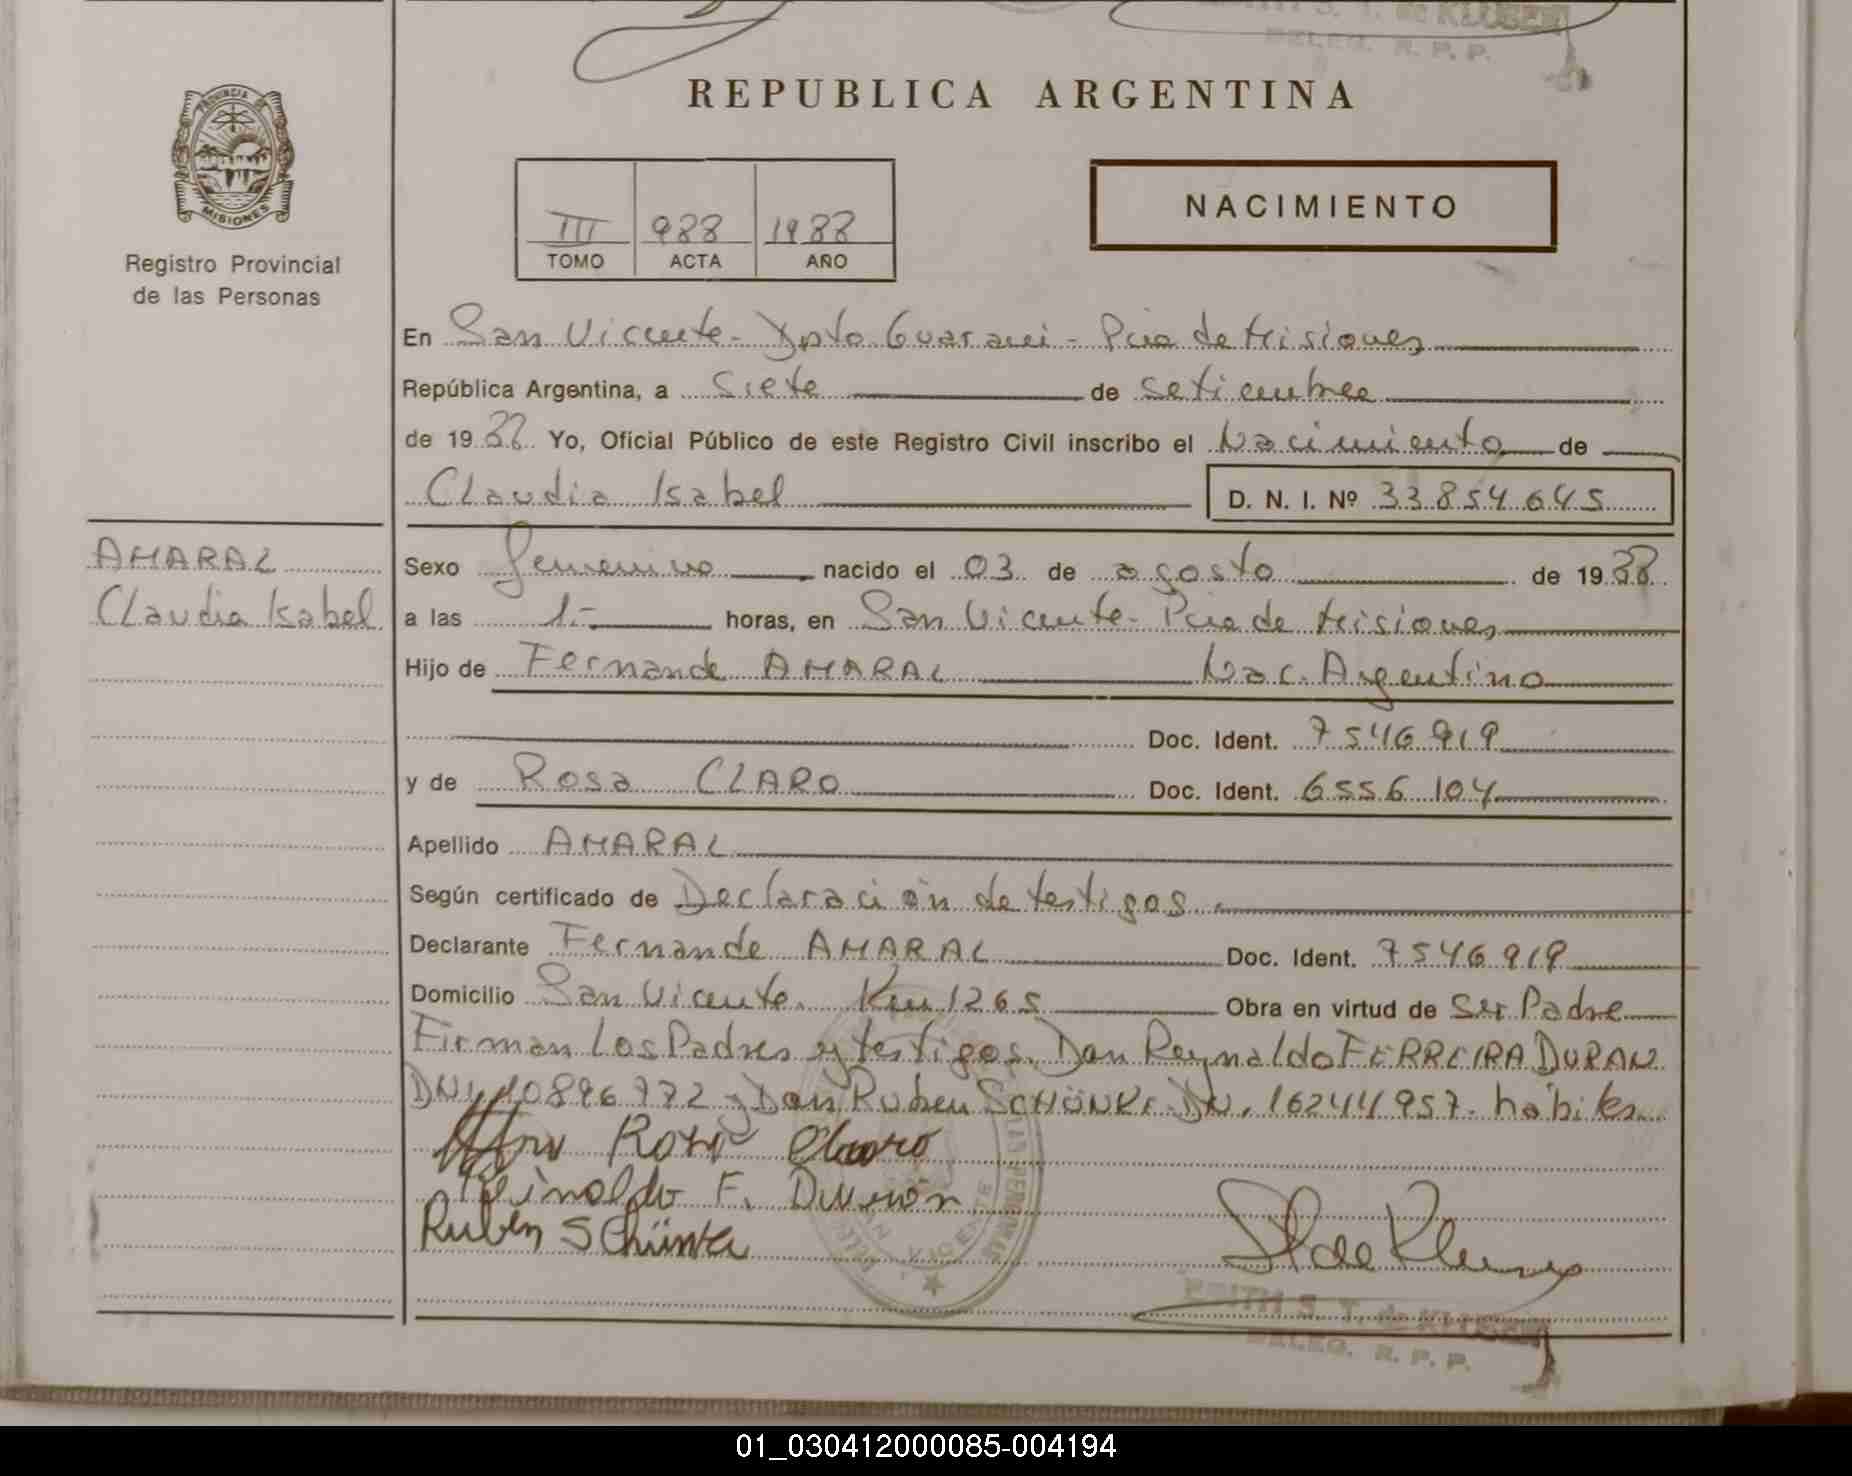 EDITH S. T. de KLUSENER
DELEG. R. P. P.
REPUBLICA ARGENTINA
PROVINCIA DE
MISIONES
Registro Provincial
de las Personas
III 988 1988
TOMO ACTA AÑO
NACIMIENTO
En San Vicente - Dpto Guarani - Pcia de Misiones
República Argentina, a Siete de setiembre
de 1988 Yo, Oficial Público de este Registro Civil inscribo el Nacimiento de
Claudia Isabel D. N. I. Nº 33.854.645
AMARAL
Claudia Isabel
Sexo femenino nacido el 03 de agosto de 1988
a las 1.- horas, en San Vicente - Pcia de Misiones
Hijo de Fernande AMARAL Nac. Argentino
Doc. Ident. 7546919
y de Rosa CLARO Doc. Ident. 6556104
Apellido AMARAL
Según certificado de Declaración de testigos
Declarante Fernande AMARAL Doc. Ident. 7546919
Domicilio San Vicente. Km 1265 Obra en virtud de Ser Padre
Firman Los Padres y testigos. Don Reynaldo FERREIRA DURAN
DNI 10896772 y Don Ruben SCHÜNKE DN. 16244957. habiles
Rosa Claro
Reinaldo F. Duran
Ruben Schünke
EDITH S. T. de KLUSENER
DELEG. R. P. P.
01_030412000085-004194